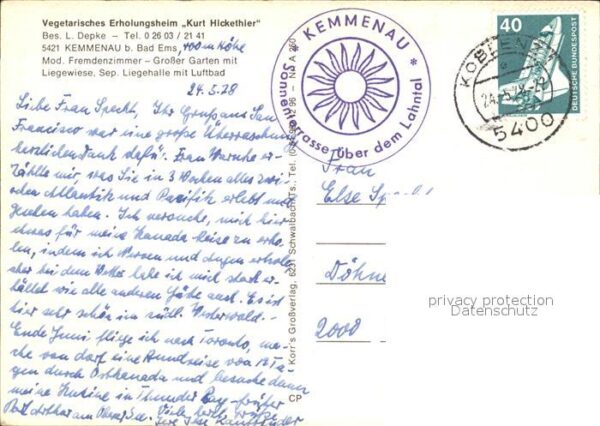 Vegetarisches Erholungsheim „Kurt Hickethier"
Bes. L. Depke – Tel. 0 26 03 / 21 41
5421 KEMMENAU b. Bad Ems, 400m Höhe
Mod. Fremdenzimmer – Großer Garten mit
Liegewiese, Sep. Liegehalle mit Luftbad
24.5.78
Liebe Frau Specht, Ihr Gruß aus San
Francisco war eine große Überraschung
herzlichen Dank dafür. Frau er-
zählte mir, was Sie in 3 Wochen alles zwi-
schen Atlantik und Pazifik erlebt und
gesehen haben. Ich versuche, mich hier
etwas für meine Kanada-Reise zu erho-
len, indem ich
aber bei dem Wetter habe ich mich stark er-
kältet wie alle anderen Gäste auch. Es ist
hier sehr schön im südl. Westerwald.-
Ende Juni fliege ich nach Toronto, ma-
che von dort eine Rundreise von 12 Ta-
gen durch Ostkanada und besuche dann
meine Kusine in Thunder Bay - früher
Port Arthur am Oberen See. Viele herzl. Grüße
Ihre
Korr's Großverlag, 6231 Schwalbach/Ts., Tel.
CP
KEMMENAU
Sonnenterrasse über dem Lahntal
KOBLENZ
24.-5.78-20
5400
40
DEUTSCHE BUNDESPOST
Frau
Else
Döhne
2000
privacy protection
Datenschutz